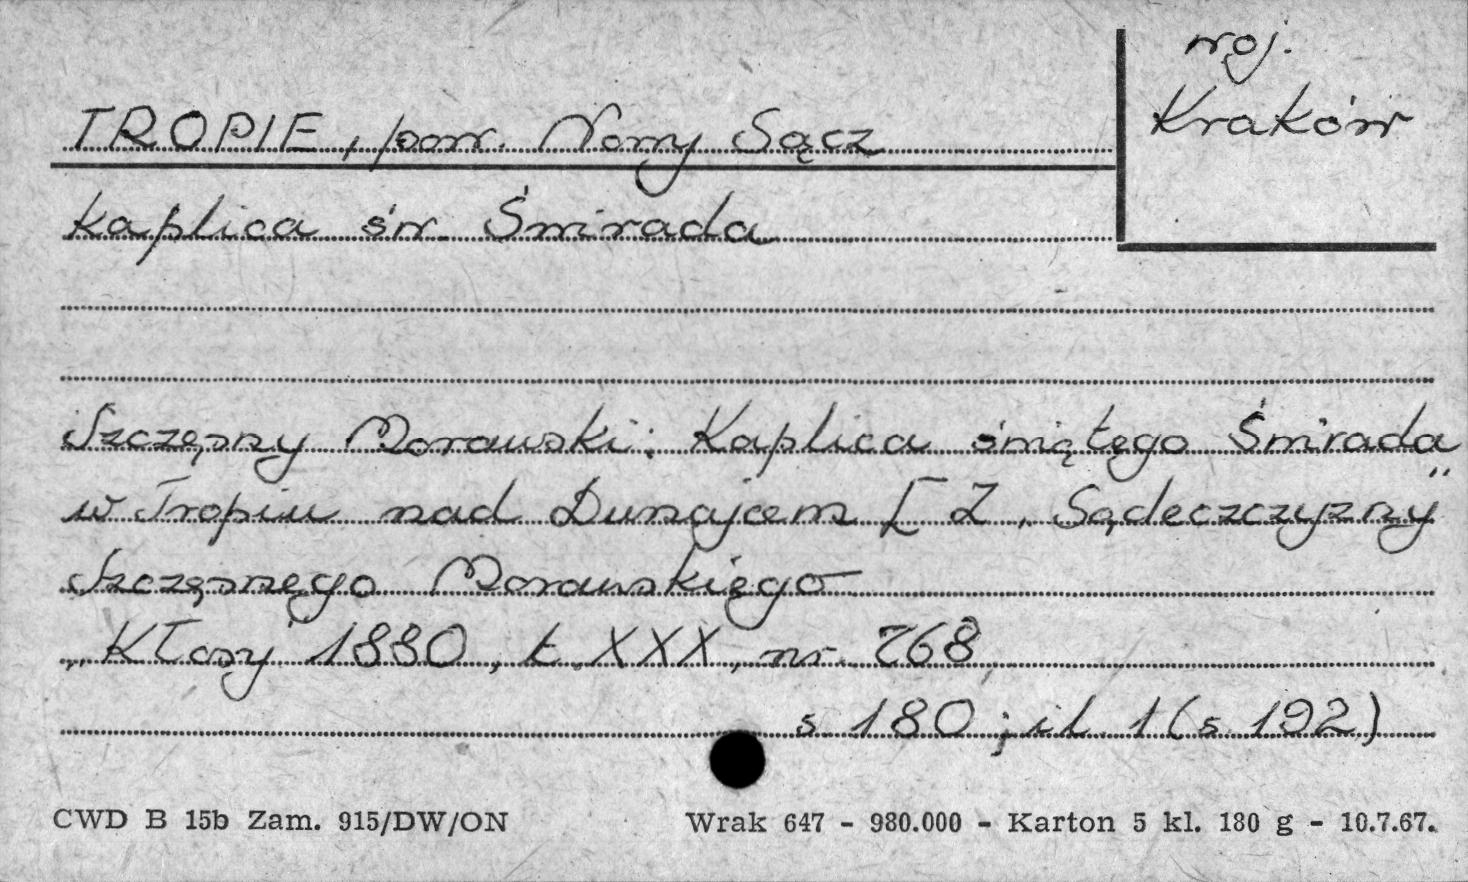 woj.
Kraków
TROPIE, pow. Nowy Sącz
kaplica św. Świrada
Szczęsny Morawski: Kaplica śwątęgo Świrada
w Tropiu nad Dunajcem [Z „Sądeczczyzny”
Szczęsnęgo Morawskięgo
„Kłosy” 1880, t. XXX, nr. 768
s 180; il. 1 (s. 192)
CWD B 15b Zam. 915/DW/ON Wrak 647 - 980.000 - Karton 5 kl. 180 g - 10.7.67.